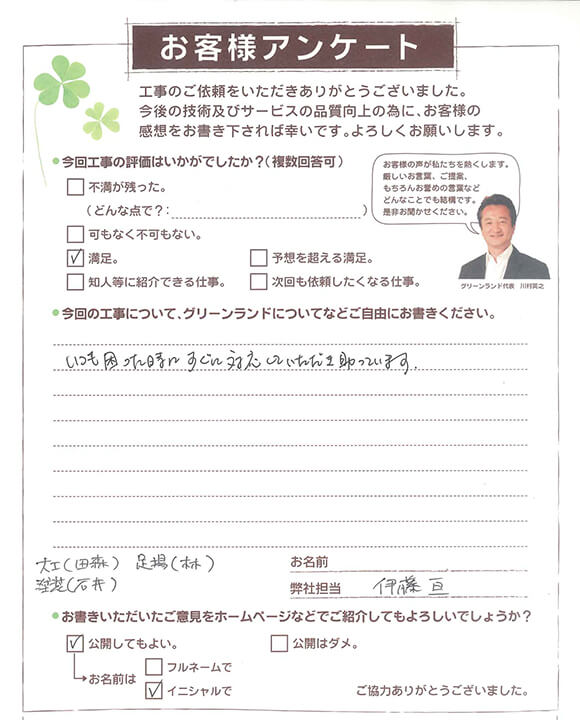 お客様アンケート
工事のご依頼をいただきありがとうございました。
今後の技術及びサービスの品質向上の為に、お客様の
感想をお書き下されば幸いです。よろしくお願いします。
今回工事の評価はいかがでしたか?(複数回答可)
お客様の声が私たちを熱くします。
厳しいお言葉、ご提案、
もちろんお誉めの言葉など
どんなことでも結構です。
是非お聞かせください。
不満が残った。
(どんな点で?: )
可もなく不可もない。
満足。 予想を超える満足。
知人等に紹介できる仕事。 次回も依頼したくなる仕事。
グリーンランド代表 川村真之
今回の工事について、グリーンランドについてなどご自由にお書きください。
いつも困った時にすぐに対応していただき助っています。
大工(田森) 足場(林)
塗装(石井)
お名前
弊社担当 伊藤 亘
お書きいただいたご意見をホームページなどでご紹介してもよろしいでしょうか?
公開してもよい。 公開はダメ。
お名前は フルネームで
イニシャルで
ご協力ありがとうございました。